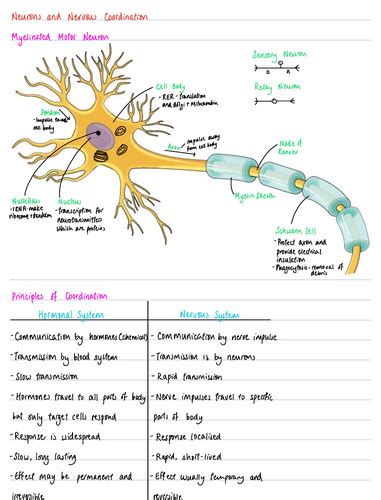 Neurons and Nervous Coordination
Myelinated Motor Neuron
Sensory Neuron
D A
Relay Neuron
Cell Body
- RER - translation
and Golgi + Mitochondria
Dendon
- Impulse toward
cell body
Axon - impulse away
from cell body
Node of
Ranvier
Nucleolus
- rRNA - make
ribosome
Nucleus
- transcription for
neurotransmitter
which are proteins
Myelin Sheath
Schwann Cell
- Protect axon and
provide electrical
insulation
- Phagocytosis - removal of
debris
Principles of Coordination
Hormonal System
Nervous System
- Communication by hormones (chemical)
- Communication by nerve impulse
- Transmission by blood system
- Transmission is by neurons
- Slow transmission
- Rapid transmission
- Hormones travel to all parts of body
but only target cells respond
- Nerve impulses travel to specific
parts of body
- Response is widespread
- Response localised
- Slow, long lasting
- Rapid, short-lived
- Effect may be permanent and
irreversible
- Effect usually temporary and
reversible